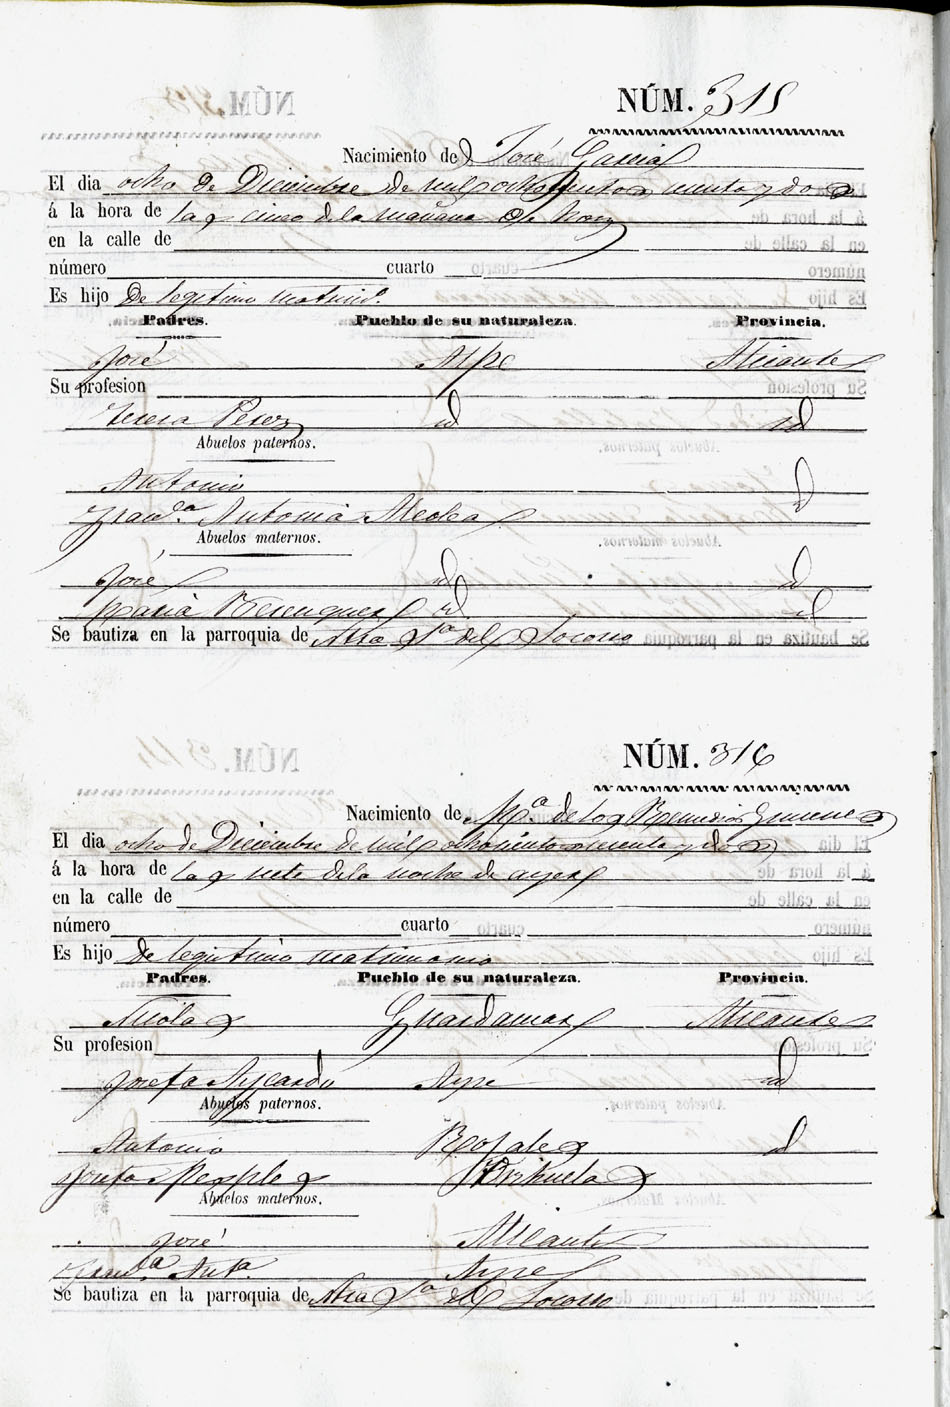 NÚM. 315
Nacimiento de José Garcia
El dia ocho de Diciembre de mil ochocientos y dos
á la hora de las cinco de la mañana de hoy
en la calle de
número cuarto
Es hijo de legitimo matrim.º
Padres. Pueblo de su naturaleza. Provincia.
José Aspe Alicante
Su profesion
Teresa Perez id id
Abuelos paternos.
Antonio id
Fran.ca Antonia Alcolea
Abuelos maternos.
José id id
Maria Berenguer id id
Se bautiza en la parroquia de Ntra Sra del Socorro
NÚM. 316
Nacimiento de M.ª de los Remedios Gimenez
El dia ocho de Diciembre de mil ochocientos y dos
á la hora de las siete de la noche de ayer
en la calle de
número cuarto
Es hijo de legitimo matrimonio
Padres. Pueblo de su naturaleza. Provincia.
Nicolas Guardamar Alicante
Su profesion
Josefa Aspe id
Abuelos paternos.
Antonio Rojales id
Josefa Orihuela
Abuelos maternos.
José Alicante
Fran.ca Ant.ª Aspe
Se bautiza en la parroquia de Ntra Sra del Socorro